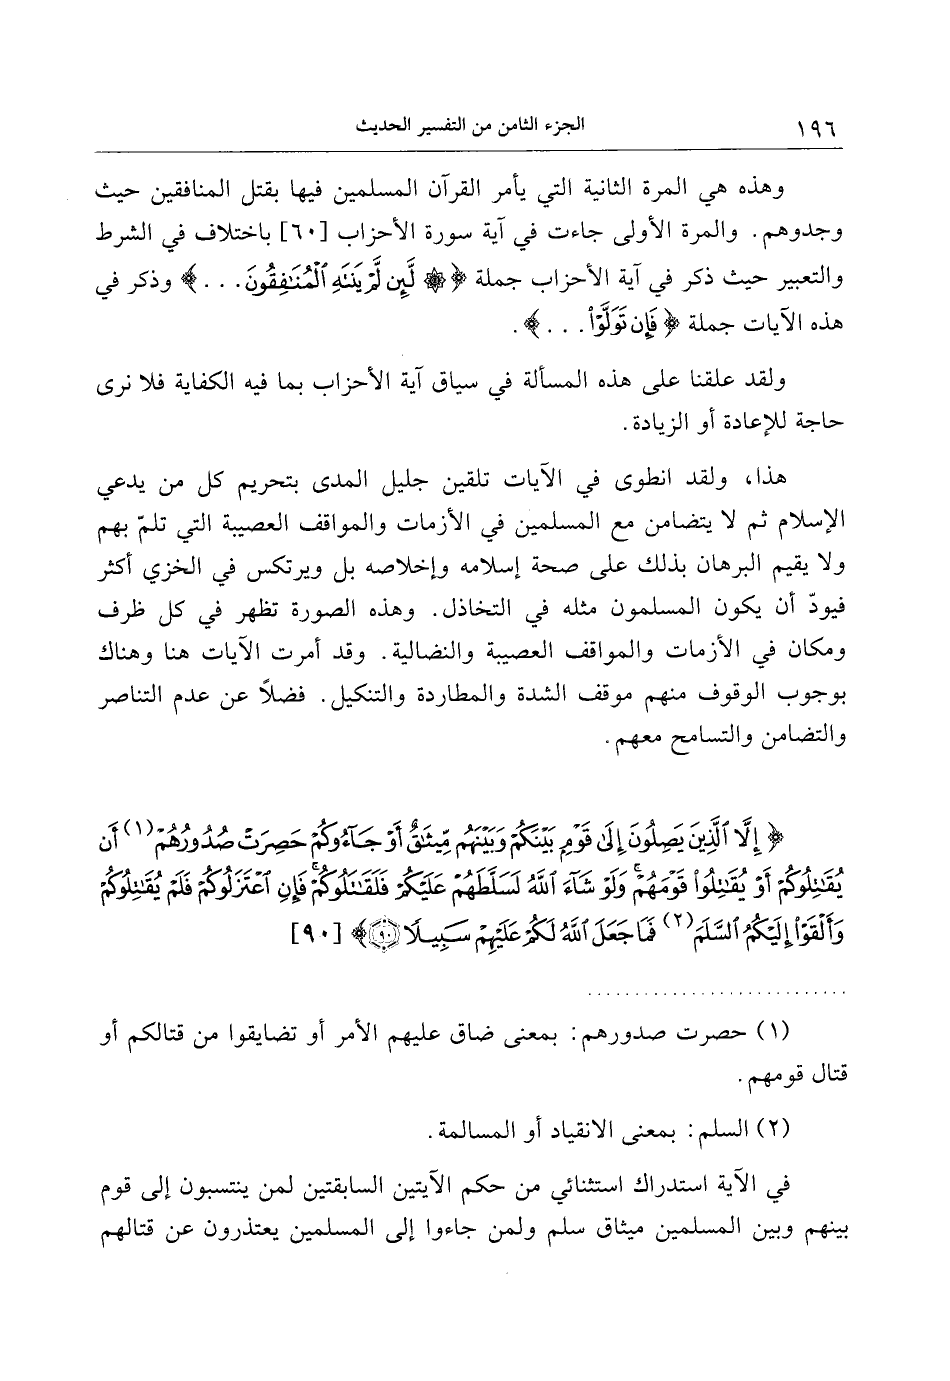 ١٩٦ الجزء الثامن من التفسير الحديث
وهذه هي المرة الثانية التي يأمر القرآن المسلمين فيها بقتل المنافقين حيث
وجدوهم. والمرة الأولى جاءت في آية سورة الأحزاب [٦٠] باختلاف في الشرط
والتعبير حيث ذكر في آية الأحزاب جملة ﴿۞ لَّئِن لَّمْ يَنتَهِ ٱلْمُنَٰفِقُونَ. . .﴾ وذكر في
هذه الآيات جملة ﴿فَإِن تَوَلَّوْا۟. . .﴾.
ولقد علقنا على هذه المسألة في سياق آية الأحزاب بما فيه الكفاية فلا نرى
حاجة للإعادة أو الزيادة.
هذا، ولقد انطوى في الآيات تلقين جليل المدى بتحريم كل من يدعي
الإسلام ثم لا يتضامن مع المسلمين في الأزمات والمواقف العصيبة التي تلمّ بهم
ولا يقيم البرهان بذلك على صحة إسلامه وإخلاصه بل ويرتكس في الخزي أكثر
فيودّ أن يكون المسلمون مثله في التخاذل. وهذه الصورة تظهر في كل ظرف
ومكان في الأزمات والمواقف العصيبة والنضالية. وقد أمرت الآيات هنا وهناك
بوجوب الوقوف منهم موقف الشدة والمطاردة والتنكيل. فضلاً عن عدم التناصر
والتضامن والتسامح معهم.
﴿إِلَّا ٱلَّذِينَ يَصِلُونَ إِلَىٰ قَوْمٍۭ بَيْنَكُمْ وَبَيْنَهُم مِّيثَٰقٌ أَوْ جَآءُوكُمْ حَصِرَتْ صُدُورُهُمْ(١) أَن
يُقَٰتِلُوكُمْ أَوْ يُقَٰتِلُوا۟ قَوْمَهُمْ ۚ وَلَوْ شَآءَ ٱللَّهُ لَسَلَّطَهُمْ عَلَيْكُمْ فَلَقَٰتَلُوكُمْ ۚ فَإِنِ ٱعْتَزَلُوكُمْ فَلَمْ يُقَٰتِلُوكُمْ
وَأَلْقَوْا۟ إِلَيْكُمُ ٱلسَّلَمَ(٢) فَمَا جَعَلَ ٱللَّهُ لَكُمْ عَلَيْهِمْ سَبِيلًا ۝٩٠﴾ [٩٠]
(١) حصرت صدورهم: بمعنى ضاق عليهم الأمر أو تضايقوا من قتالكم أو
قتال قومهم.
(٢) السلم: بمعنى الانقياد أو المسالمة.
في الآية استدراك استثنائي من حكم الآيتين السابقتين لمن ينتسبون إلى قوم
بينهم وبين المسلمين ميثاق سلم ولمن جاءوا إلى المسلمين يعتذرون عن قتالهم